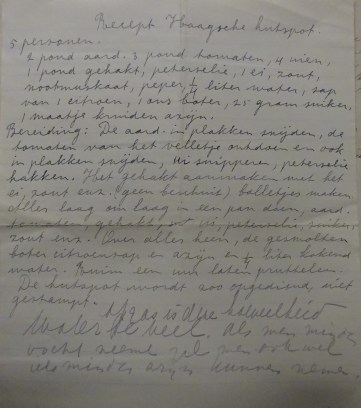 Recept Haagsche hutspot.
5 personen.
2 pond aard. 3 pond tomaten, 4 uien,
1 pond gehakt, peterselie, 1 ei, zout,
nootmuskaat, peper, ½ liter water, sap
van 1 citroen, 1 ons boter, 25 gram suiker,
1 maatje kruiden azijn.
Bereiding: De aard. in plakken snijden, de
tomaten van het velletje ontdoen en ook
in plakken snijden, ui snipperen, peterselie
hakken. Het gehakt aanmaken met het
ei, zout enz. (geen beschuit) balletjes maken.
Alles laag om laag in een pan doen, aard.
tomaten, gehakt, ui, peterselie, suiker,
zout enz. Over alles heen, de gesmolten
boter citroensap en azijn en ½ liter kokend
water. Ruim een uur laten pruttelen.
De hutspot wordt zoo opgediend, niet
gestampt.
is deze hoeveelheid
water te veel. Als men minder
vocht neemt zal men ook wel
iets minder azijn kunnen nemen.